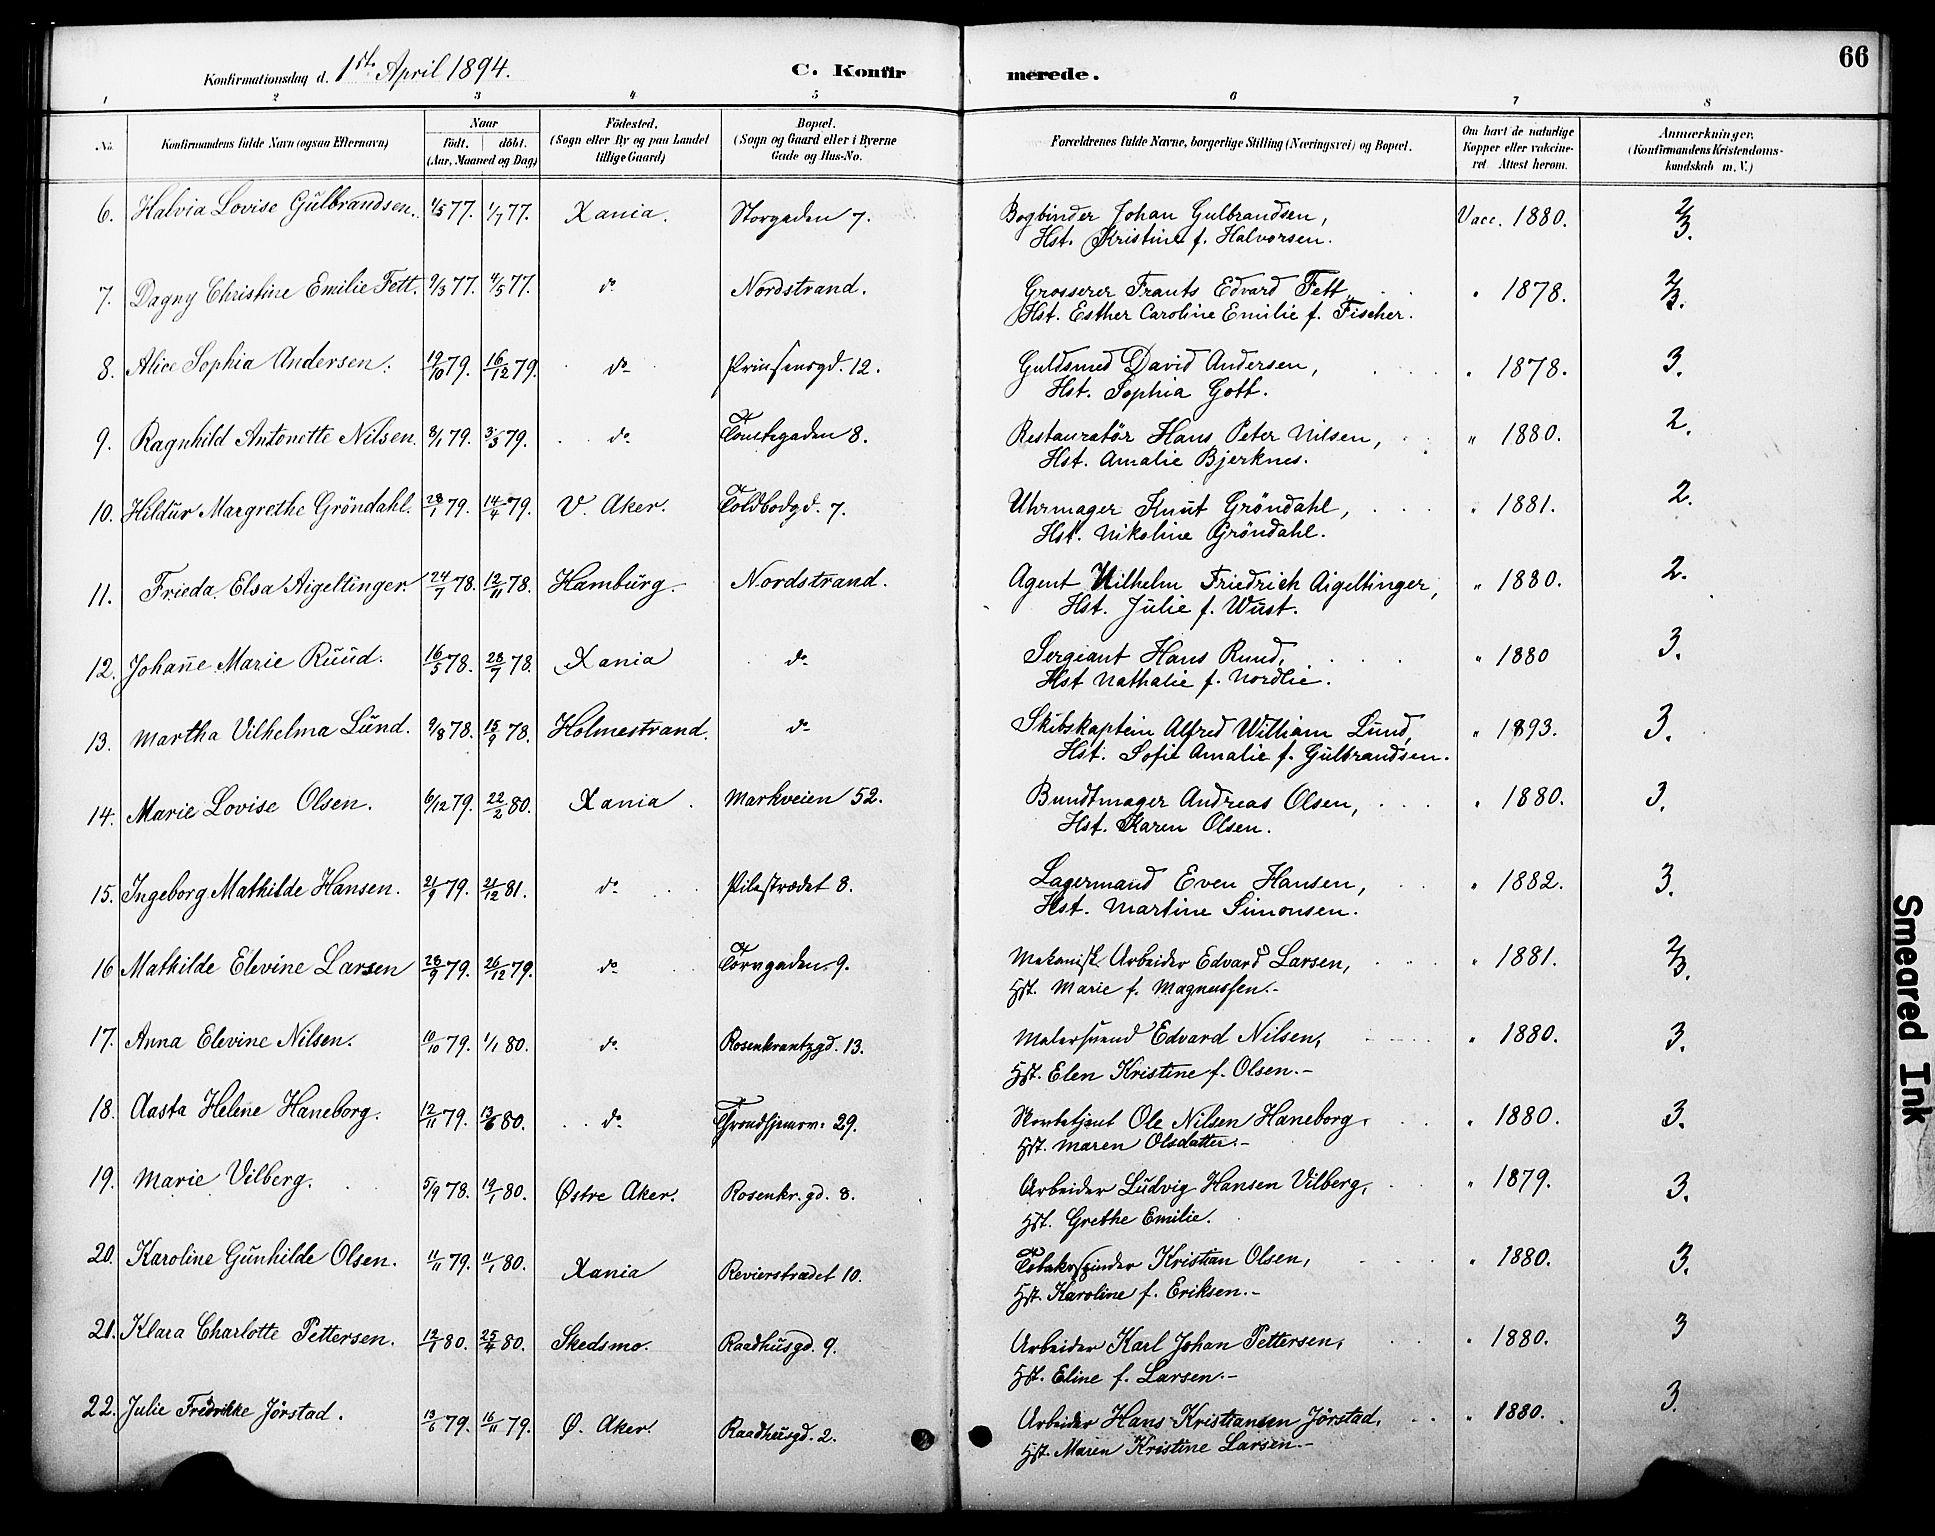 66
Konfirmationsdag d. 1ste April 1894. C. Konfirmerede.
1 2 3 4 5 6 7 8
No. Konfirmandens fulde Navn (ogsaa Efternavn) Naar födt. döbt. (Aar, Maaned og Dag) Födested. (Sogn eller By og paa Landet tillige Gaard) Bopæl. (Sogn og Gaard eller i Byerne Gade og Hus-No. Forældrenes fulde Navne, borgerlige Stilling (Næringsvei) og Bopæl. Om havt de naturlige Kopper eller vaccineret. Attest herom. Anmærkninger. (Konfirmandens Kristendomskundskab m. V.)
6. Halvia Lovise Gulbrandsen. 1/5 77. 1/7 77. Xania. Storgaden 7. Bogbinder Johan Gulbrandsen, Vacc. 1880. 2/3.
Hst. Kristine f. Halvorsen.
7. Dagny Christine Emilie Fett. 9/3 77. 4/5 77. do Nordstrand. Grosserer Frants Edvard Fett, " 1878. 2/3.
Hst. Esther Caroline Emilie f. Fischer.
8. Alice Sophia Andersen. 19/10 79. 16/12 79. do Prinsensgd. 12. Guldsmed David Andersen, " 1878. 3.
Hst. Sophia Gott.
9. Ragnhild Antonette Nilsen. 8/1 79. 3/5 79. do 8. Restauratør Hans Peter Nilsen, " 1880. 2.
Hst. Amalie Bjerknes.
10. Hildur Margrethe Gröndahl. 28/1 79. 14/4 79. V. Aker. Toldbodgd. 7. Uhrmager Knut Gröndahl, " 1881. 2.
Hst. Nikoline Gröndahl.
11. Frieda Elsa Aigeltinger. 24/7 78. 12/11 78. Hamburg. Nordstrand. Agent Wilhelm Friedrich Aigeltinger, " 1880. 2.
Hst. Julie f. Wust.
12. Johanne Marie Ruud. 16/5 78. 28/7 78. Xania do Sergiant Hans Ruud, " 1880 3.
Hst Nathalie f. Nordlie.
13. Martha Vilhelma Lund. 9/8 78. 15/9 78. Holmestrand. do Skibskaptein Alfred William Lund, " 1893. 3.
Hst. Sofie Amalie f. Gulbrandsen.
14. Marie Lovise Olsen. 6/12 79. 22/2 80. Xania. Markveien 52. Bundtmager Andreas Olsen, " 1880. 3.
Hst. Karen Olsen.
15. Ingeborg Mathilde Hansen. 21/9 79. 21/12 81. do Pilestrædet 8. Lagermand Even Hansen, " 1882. 3.
Hst. Martine Simonsen.
16 Mathilde Elevine Larsen 28/9 79. 26/12 79. do Torvgaden 9. Mekanisk Arbeider Edvard Larsen, " 1881. 2/3.
Hst. Marie f. Magnussen.
17. Anna Elevine Nilsen. 10/10 79. 1/1 80. do Rosenkrantzgd. 13. Malersvend Edvard Nilsen, " 1880. 3.
Hst. Elen Kristine f. Olsen.
18. Aasta Helene Haneborg. 12/11 79. 13/6 80. do 29. Ole Nilsen Haneborg. " 1880. 3.
Hst. Maren Olsdatter.
19. Marie Vilberg. 5/9 78. 19/1 80. Østre Aker. Rosenkr.gd. 8. Arbeider Ludvig Hansen Vilberg, " 1879. 3.
Hst. Grethe Emilie.
20. Karoline Gunhilde Olsen. 11/11 79. 11/1 80. Xania Revierstrædet 10. Tobakspinder Kristian Olsen, " 1880. 3.
Hst. Karoline f. Eriksen.
21. Klara Charlotte Pettersen. 12/1 80. 25/4 80. Skedsmo. Raadhusgd. 9. Arbeider Karl Johan Pettersen, " 1880. 3
Hst. Eline f. Larsen.
22. Julie Fredrikke Jörstad. 13/6 79. 16/11 79. Ø. Aker. Raadhusgd. 2. Arbeider Hans Kristiansen Jörstad, " 1880. 3.
Hst. Maren Kristine Larsen.
Smeared Ink